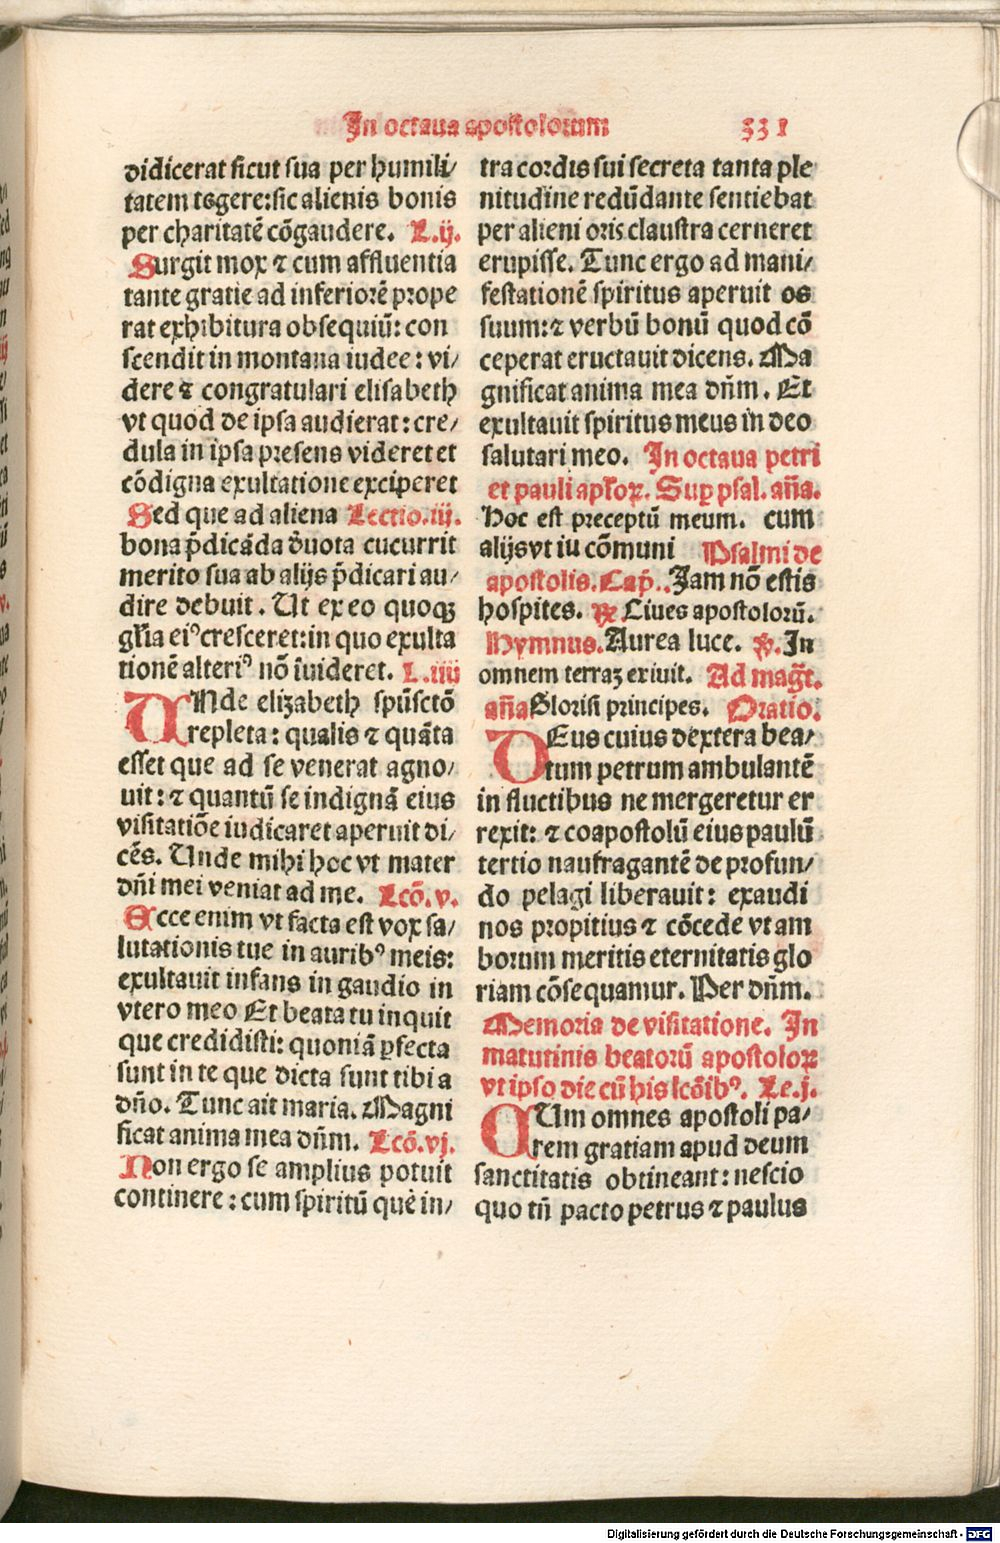 In octaua apostolorum 331
didicerat sicut sua per humili/
tatem tegere: sic alienis bonis
per charitatē cōgaudere. L.ij.
Surgit mox ⁊ cum affluentia
tante gratie ad inferiorē prope
rat exhibitura obsequiū: con
scendit in montana iudee: vi/
dere ⁊ congratulari elisabeth
vt quod de ipsa audierat: cre/
dula in ipsa presens videret et
cōdigna exultatione exciperet
Sed que ad aliena Lectio.iij.
bona p̄dicāda d̄uota cucurrit
merito sua ab alijs p̄dicari au/
dire debuit. Ut ex eo quoqꝫ
gr̄ia eiꝰ cresceret: in quo exulta
tionē alteriꝰ nō īuideret. L.iiij
UNde elizabeth spūsctō
repleta: qualis ⁊ quāta
esset que ad se venerat agno/
uit: ⁊ quantū se indignā eius
visitatiōe iudicaret aperuit di/
cēs. Unde mihi hoc vt mater
dn̄i mei veniat ad me. Lcō.v.
Ecce enim vt facta est vox sa/
lutationis tue in auribꝰ meis:
exultauit infans in gaudio in
vtero meo Et beata tu inquit
que credidisti: quoniā ꝑfecta
sunt in te que dicta sunt tibi a
dn̄o. Tunc ait maria. Magni
ficat anima mea dn̄m. Lcō.vj.
Non ergo se amplius potuit
continere: cum spiritū quē in/
tra cordis sui secreta tanta ple
nitudine redūdante sentiebat
per alieni oris claustra cerneret
erupisse. Tunc ergo ad mani/
festationē spiritus aperuit os
suum: ⁊ verbū bonū quod cō
ceperat eructauit dicens. Ma
gnificat anima mea dn̄m. Et
exultauit spiritus meus in deo
salutari meo. In octaua petri
et pauli apl'oꝝ. Suꝑ psal. an̄a.
Hoc est preceptū meum. cum
alijs vt iu cōmuni Psalmi de
apostolis. Cap̄.. Jam nō estis
hospites. ℞ Ciues apostolorū.
Hymnus. Aurea luce. ℣. In
omnem terraꝫ exiuit. Ad mag̅t.
an̄a Gloriosi principes. Oratio.
DEus cuius dextera bea/
tum petrum ambulantē
in fluctibus ne mergeretur er
rexit: ⁊ coapostolū eius paulū
tertio naufragantē de profun/
do pelagi liberauit: exaudi
nos propitius ⁊ cōcede vt am
borum meritis eternitatis glo
riam cōsequamur. Per dn̄m.
Memoria de visitatione. In
matutinis beatorū apostoloꝝ
vt ipso die cū his lcōibꝰ. Le.j.
CUm omnes apostoli pa/
rem gratiam apud deum
sanctitatis obtineant: nescio
quo tn̄ pacto petrus ⁊ paulus
Digitalisierung gefördert durch die Deutsche Forschungsgemeinschaft - DFG